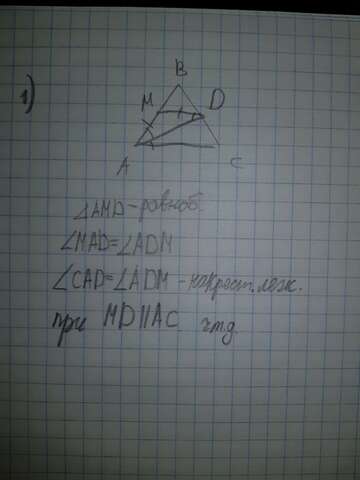 1)
B
M D
A C
∠AMD - равноб.
∠MAD=∠ADM
∠CAD=∠ADM - накрест. леж.
при MD||AC чтд.